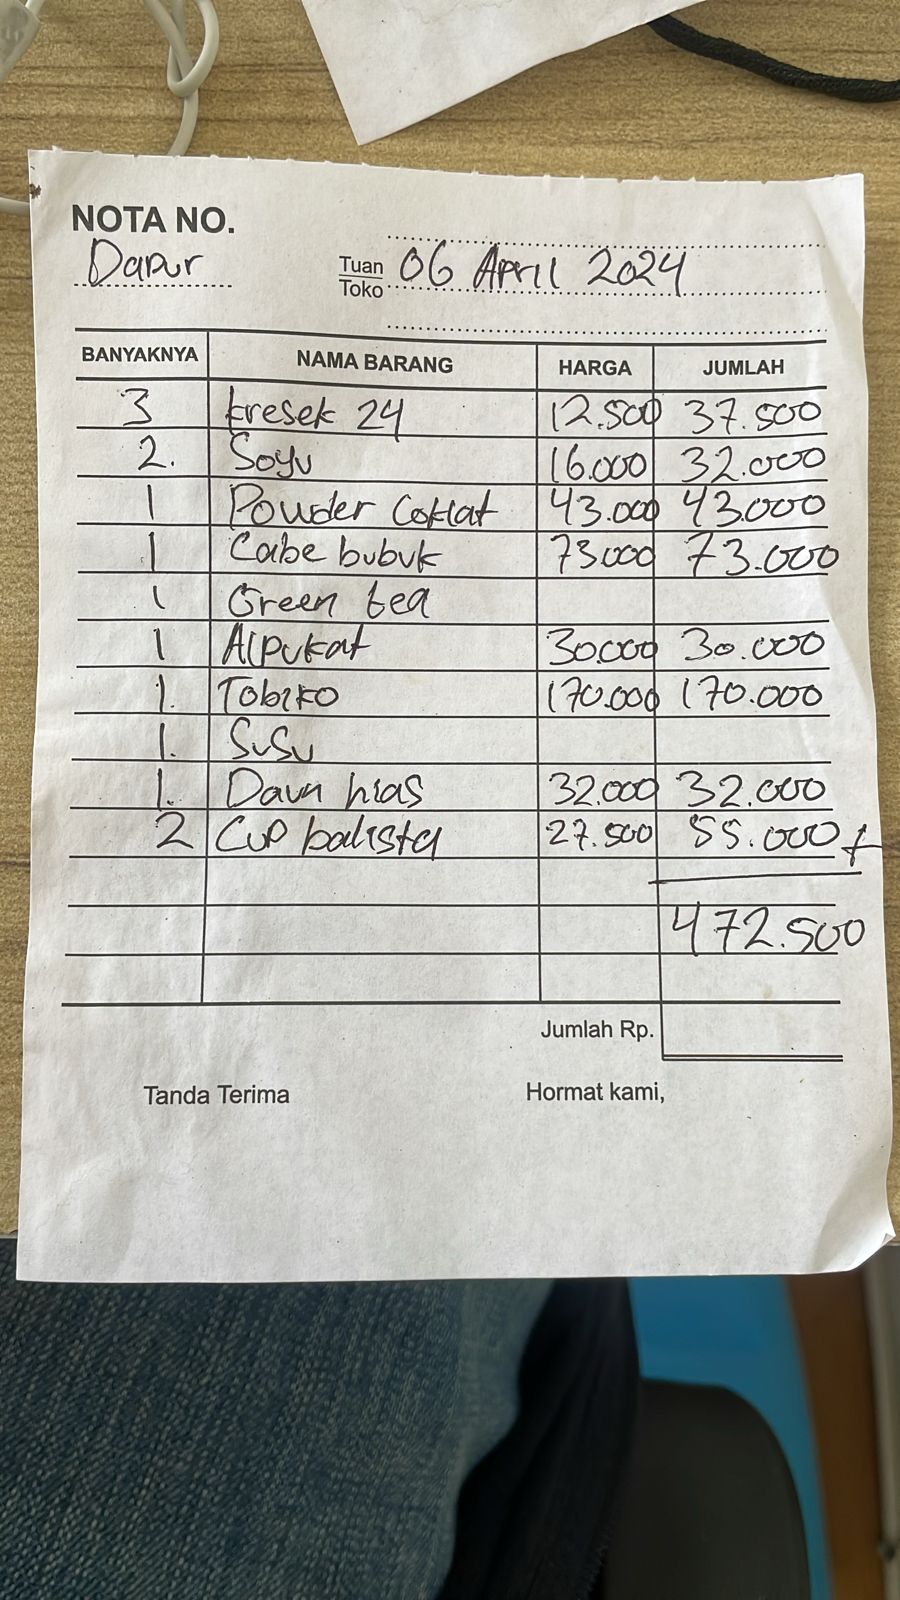 NOTA NO.
Dapur
Tuan
Toko
06 April 2024
BANYAKNYA NAMA BARANG HARGA JUMLAH
3 kresek 24 12.500 37.500
2. Soyu 16.000 32.000
1 Powder Coklat 43.000 43.000
1 Cabe bubuk 73000 73.000
1 Green tea
1 Alpukat 30.000 30.000
1. Tobiko 170.000 170.000
1. Susu
1. Daun hias 32.000 32.000
2 Cup balista 27.500 55.000 +
472.500
Jumlah Rp.
Tanda Terima Hormat kami,